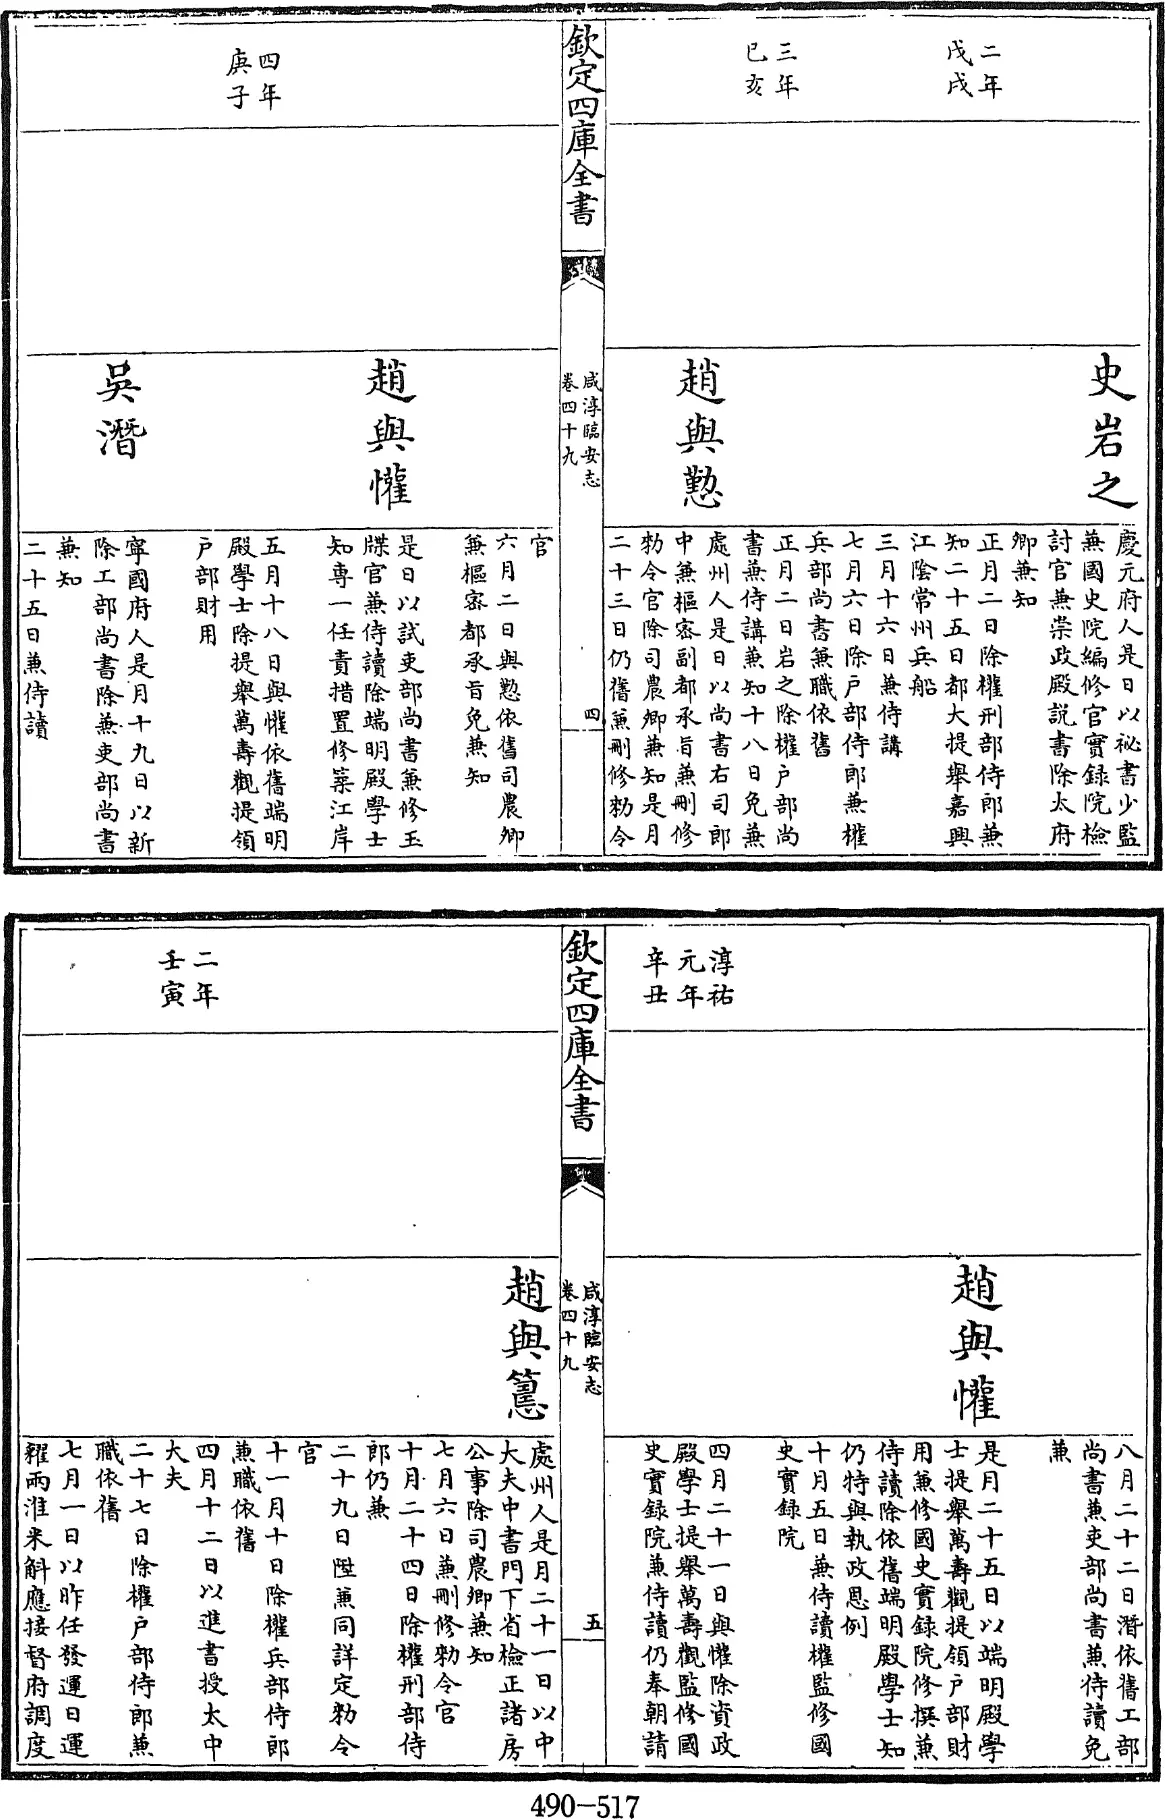 二年
戊戌
三年
已亥
史岩之
趙與懃
慶元府人是日以祕書少監
兼國史院編修官實録院檢
討官兼崇政殿説書除太府
卿兼知
正月二日除權刑部侍郎兼
知二十五日都大提舉嘉興
江陰常州兵船
三月十六日兼侍講
七月六日除户部侍郎兼權
兵部尚書兼職依舊
正月二日岩之除權户部尚
書兼侍講兼知十八日免兼
處州人是日以尚書右司郎
中兼樞密副都承旨兼刪修
勑令官除司農卿兼知是月
二十三日仍舊兼刪修勑令
欽定四庫全書
咸淳臨安志
卷四十九
四
四年
庚子
趙與懽
吳潛
官
六月二日與懃依舊司農卿
兼樞密都承旨免兼知
是日以試吏部尚書兼修玉
牒官兼侍讀除端明殿學士
知専一任責措置修築江岸
五月十八日與懽依舊端明
殿學士除提舉萬壽觀提領
户部財用
寧國府人是月十九日以新
除工部尚書除兼吏部尚書
兼知
二十五日兼侍讀
淳祐
元年
辛丑
趙與懽
八月二十二日潛依舊工部
尚書兼吏部尚書兼侍讀免
兼
是月二十五日以端明殿學
士提舉萬壽觀提領户部財
用兼修國史實録院修撰兼
侍讀除依舊端明殿學士知
仍特與執政恩例
十月五日兼侍讀權監修國
史實録院
四月二十一日與懽除資政
殿學士提舉萬壽觀監修國
史實録院兼侍讀仍奉朝請
欽定四庫全書
咸淳臨安志
卷四十九
五
二年
壬寅
趙與𥲅
處州人是月二十一日以中
大夫中書門下省檢正諸房
公事除司農卿兼知
七月六日兼刪修勑令官
十月二十四日除權刑部侍
郎仍兼
二十九日陞兼同詳定勑令
官
十一月十日除權兵部侍郎
兼職依舊
四月十二日以進書授太中
大夫
二十七日除權户部侍郎兼
職依舊
七月一日以昨任發運日運
糴兩淮米斛應接督府調度
490-517